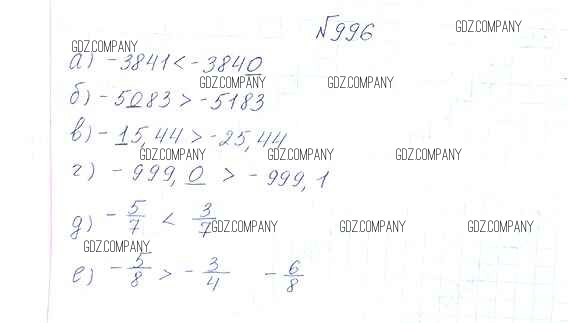 №996
GDZ.COMPANY
GDZ.COMPANY
а) -3841 < -3840
GDZ.COMPANY
GDZ.COMPANY
б) -5083 > -5183
в) -15,44 > -25,44
GDZ.COMPANY
GDZ.COMPANY
GDZ.COMPANY
г) -999,0 > -999,1
д) -5/7 < 3/7
GDZ.COMPANY
GDZ.COMPANY
GDZ.COMPANY
GDZ.COMPANY
е) -5/8 > -3/4 -6/8